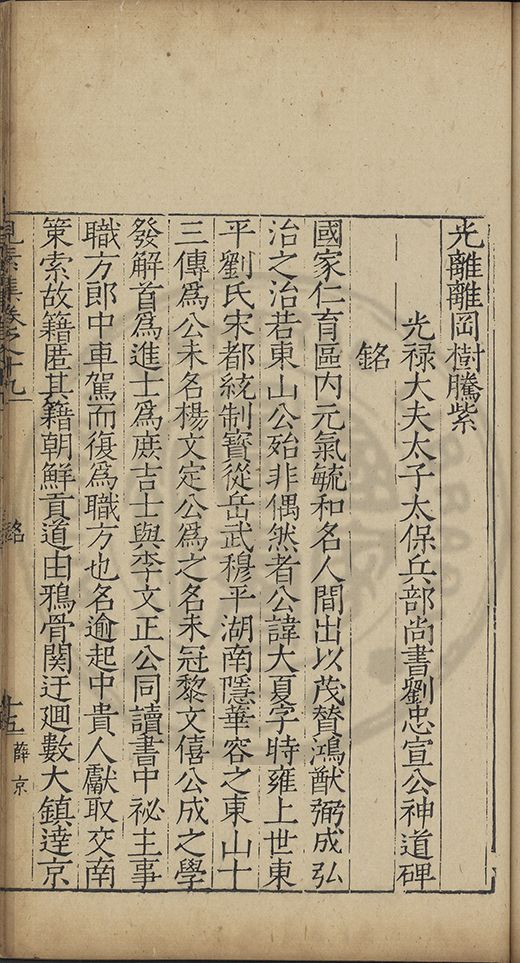 光離離岡樹騰紫
光禄大夫太子太保兵部尚書劉忠宣公神道碑
銘
國家仁育區内元氣毓和名人間出以茂賛鴻猷弼成弘
治之治若東山公殆非偶然者公諱大夏字時雍上世東
平劉氏宋都統制寳從岳武穆平湖南隱華容之東山十
三傳爲公未名楊文定公爲之名未冠黎文僖公成之學
發解首爲進士爲庶吉士與李文正公同讀書中祕主事
職方郎中車駕而復爲職方也名逾起中貴人獻取交南
策索故籍匿其籍朝鮮貢道由鴉骨関迂廻數大鎮達京
見素集卷之十九
銘
十五
薛京